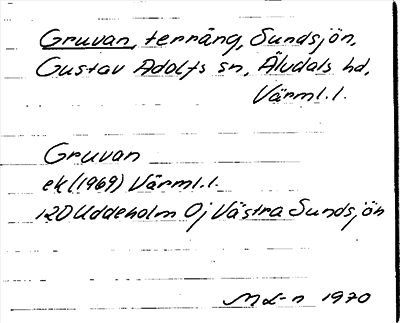 Gruvan, terräng, Sundsjön,
Gustav Adolfs sn, Älvdals hd,
Värml.l.
Gruvan
ek(1969) Värml.l.
12D Uddeholm 0j Västra Sundsjön
ML-n 1970